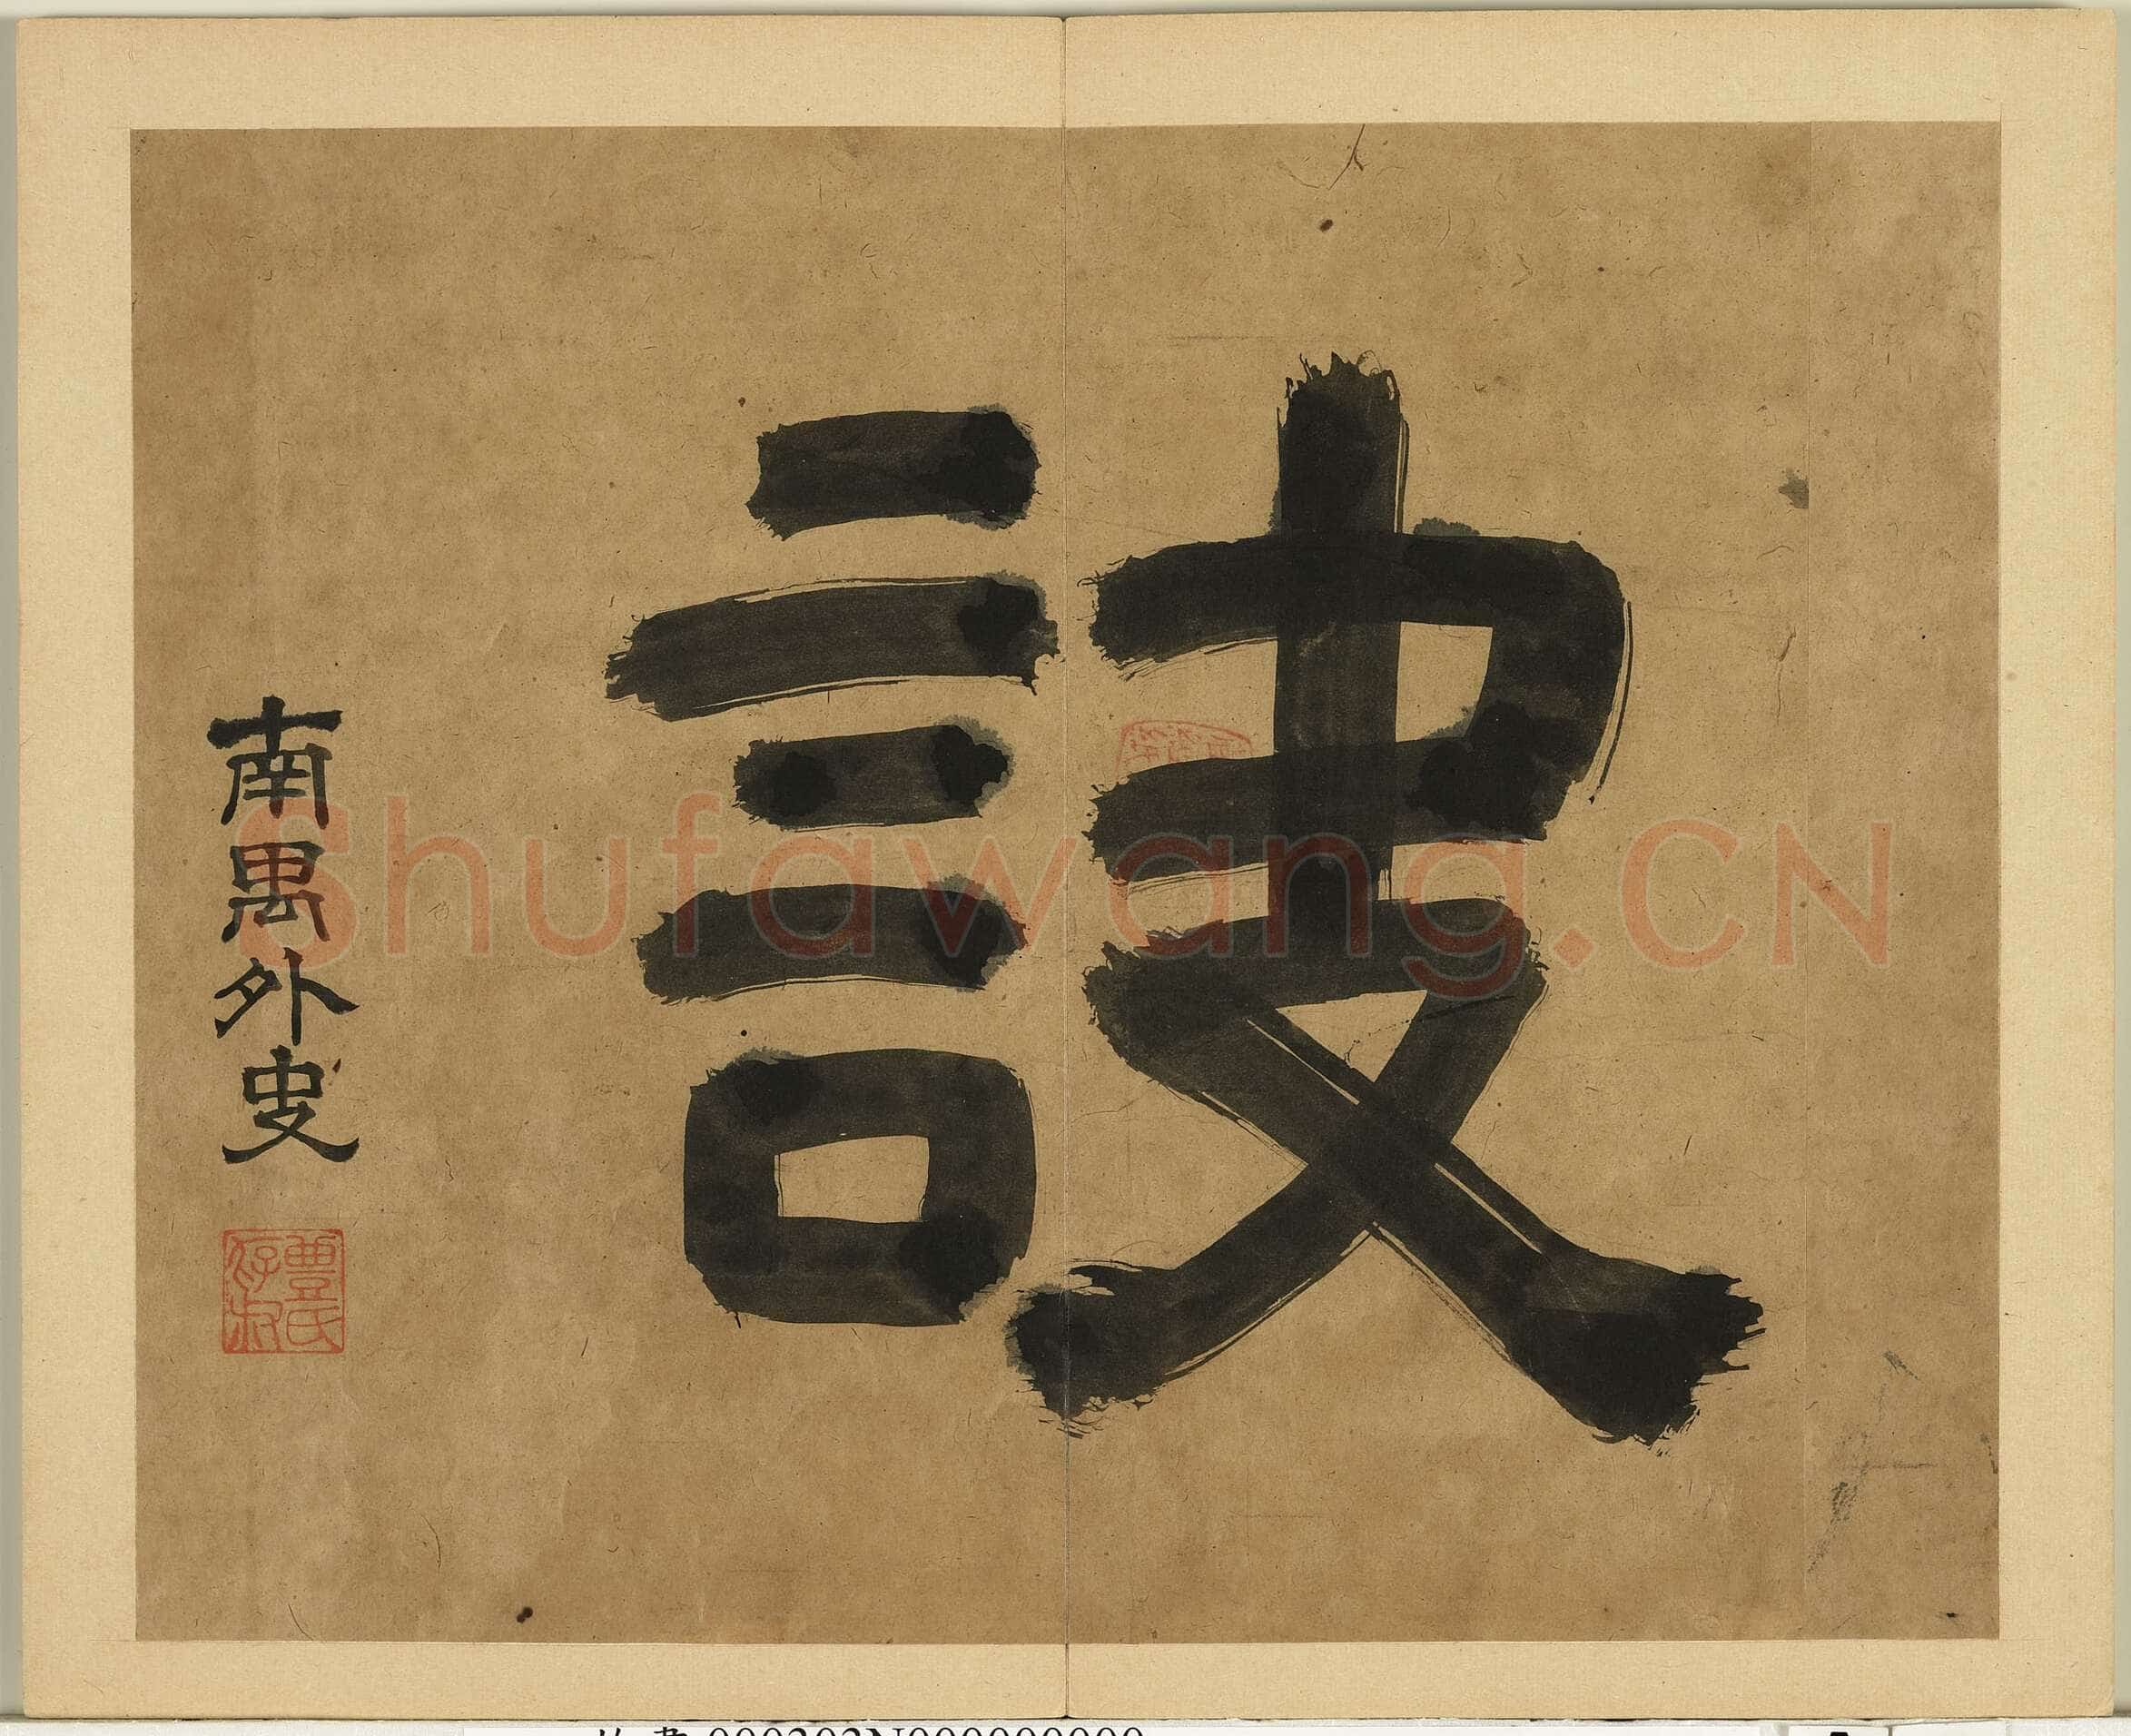 訣
南禺外史
豐氏存叔
Shufawang.CN